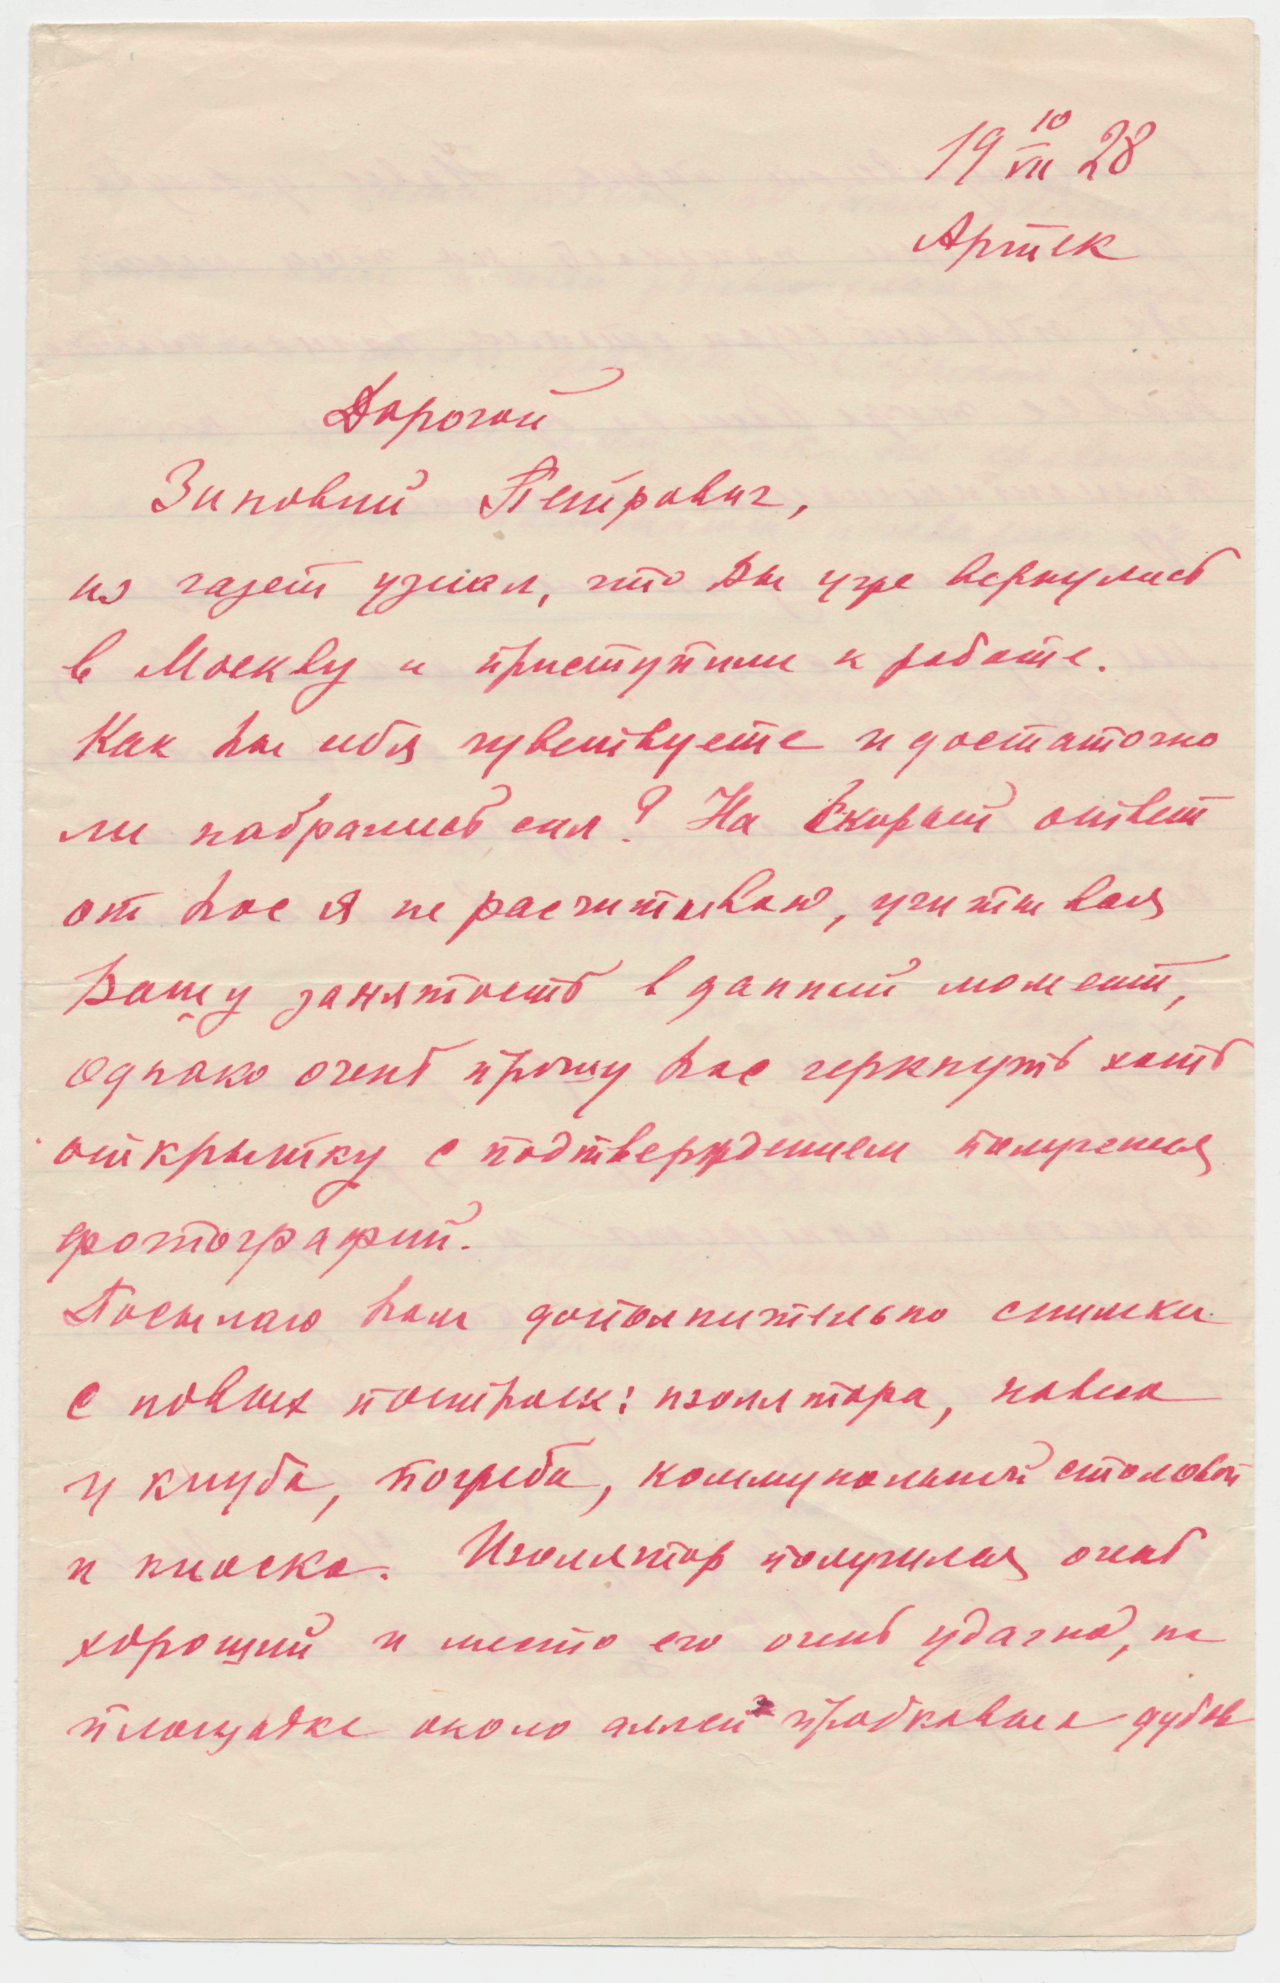 19 10/VII 28
Артек
Дорогой
Зиновий Петрович,
из газет узнал, что Вы уже вернулись
в Москву и приступили к работе.
Как Вы себя чувствуете и достаточно
ли набрались сил? На скорый ответ
от Вас я не расчитываю, учитывая
Вашу занятость в данный момент,
однако очень прошу Вас черкнуть хоть
открытку с подтверждением получения
фотографий.
Посылаю Вам дополнительно снимки
с новых построек: изолятора, навеса
у клуба, погреба, коммунальной столовой
и киоска. Изолятор получился очень
хороший и место его очень удачно, на
площадке около аллеи пробковых дубов